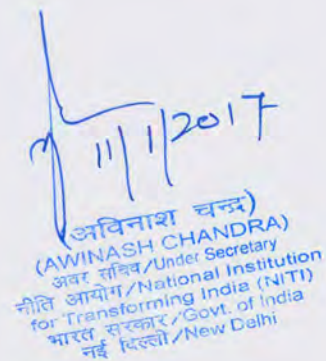 11/1/2017
(अविनाश चन्द्र)
(AWINASH CHANDRA)
अवर सचिव/Under Secretary
नीति आयोग/National Institution
for Transforming India (NITI)
भारत सरकार/Govt. of India
नई दिल्ली/New Delhi